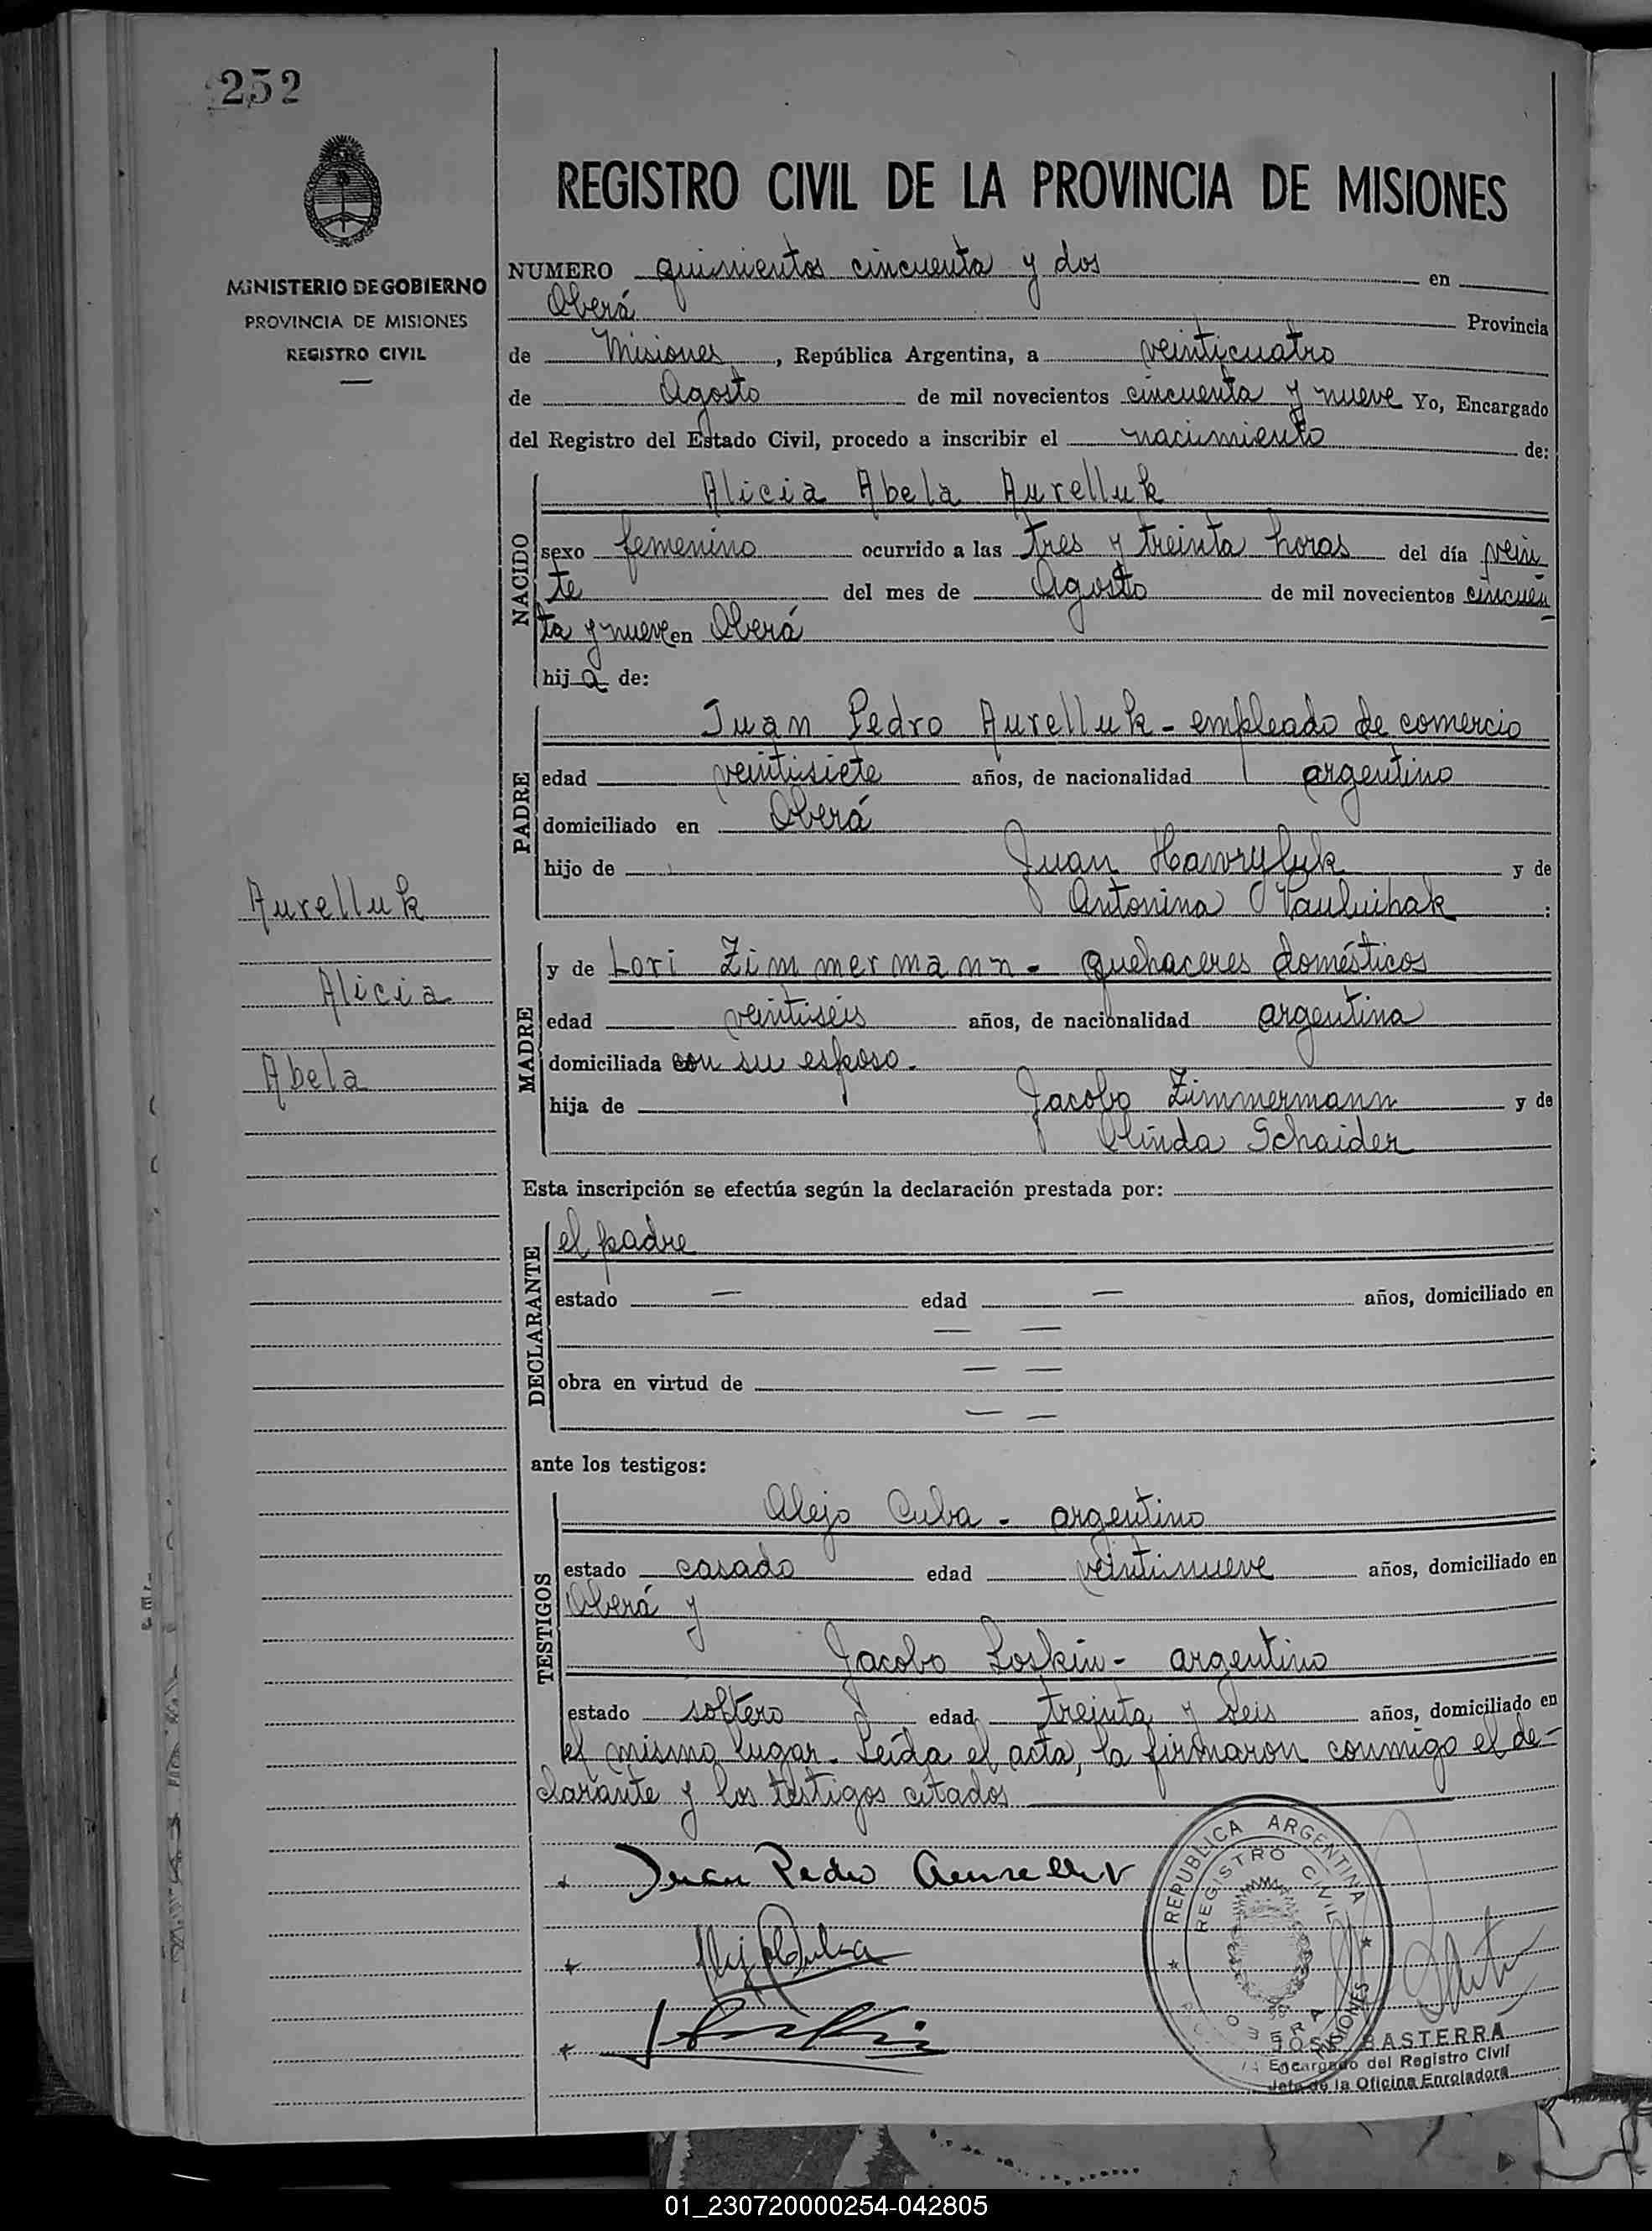 252
MINISTERIO DE GOBIERNO
PROVINCIA DE MISIONES
REGISTRO CIVIL
REGISTRO CIVIL DE LA PROVINCIA DE MISIONES
NUMERO quinientos cincuenta y dos en
Oberá Provincia
de Misiones, República Argentina, a veinticuatro
de Agosto de mil novecientos cincuenta y nueve Yo, Encargado
del Registro del Estado Civil, procedo a inscribir el nacimiento de:
NACIDO
Alicia Abela Aurelluk
sexo femenino ocurrido a las tres y treinta horas del día vein
te del mes de Agosto de mil novecientos cincuen
ta y nueve en Oberá
hija de:
PADRE
Juan Pedro Aurelluk - empleado de comercio
edad veintisiete años, de nacionalidad argentino
domiciliado en Oberá
hijo de Juan Hawryluk y de
Antonina :
Aurelluk
Alicia
Abela
MADRE
y de Lori Zimmermann - quehaceres domésticos
edad veintiséis años, de nacionalidad argentina
domiciliada con su esposo.
hija de Jacobo Zimmermann y de
Olinda Schaider
Esta inscripción se efectúa según la declaración prestada por:
DECLARANTE
el padre
estado — edad — años, domiciliado en
— —
obra en virtud de — —
— —
ante los testigos:
TESTIGOS
Alejo Cuba - argentino
estado casado edad veintinueve años, domiciliado en
Oberá y
Jacobo Loskin - argentino
estado soltero edad treinta y seis años, domiciliado en
el mismo lugar. Leída el acta, la firmaron conmigo el de-
clarante y los testigos citados
Juan Pedro
REPUBLICA ARGENTINA
REGISTRO CIVIL
OBERA
MISIONES
JOSE BASTERRA
Encargado del Registro Civil
Jefe de la Oficina Enroladora
01_230720000254-042805